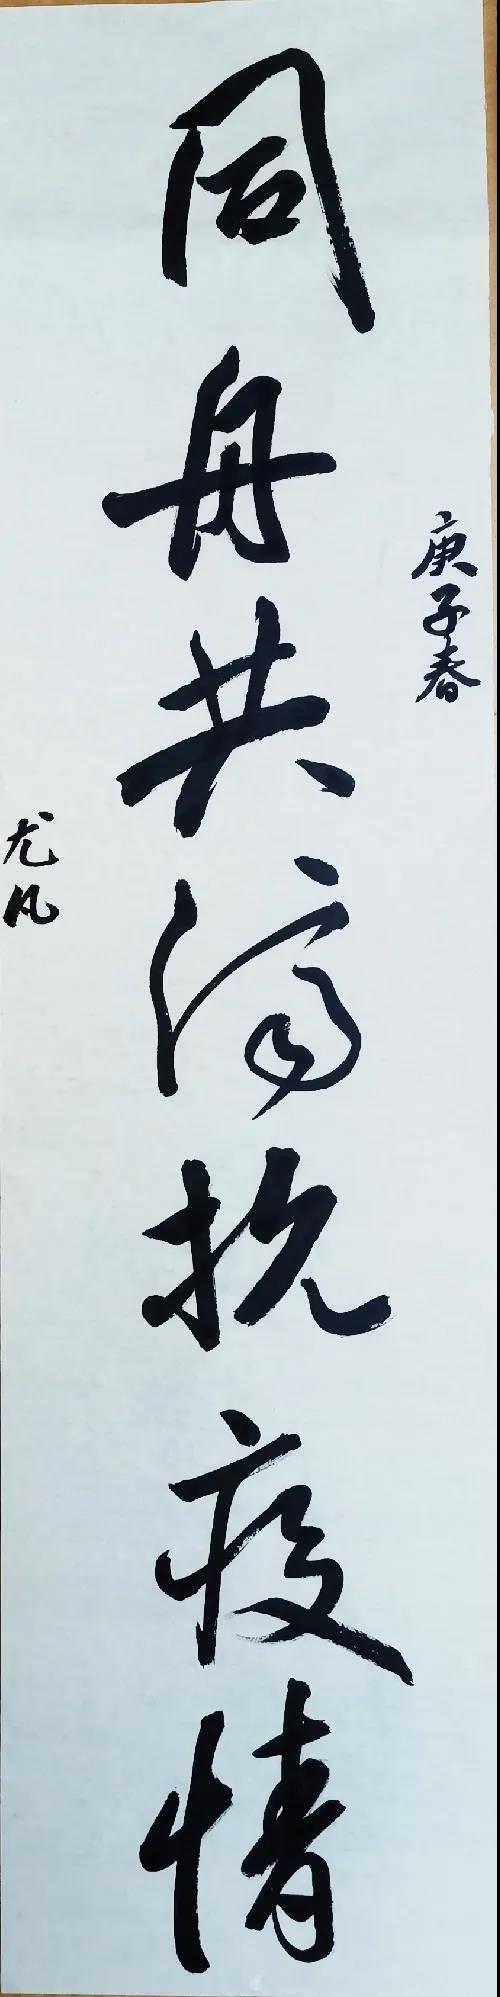 庚子春
同舟共济抗疫情
尤凡